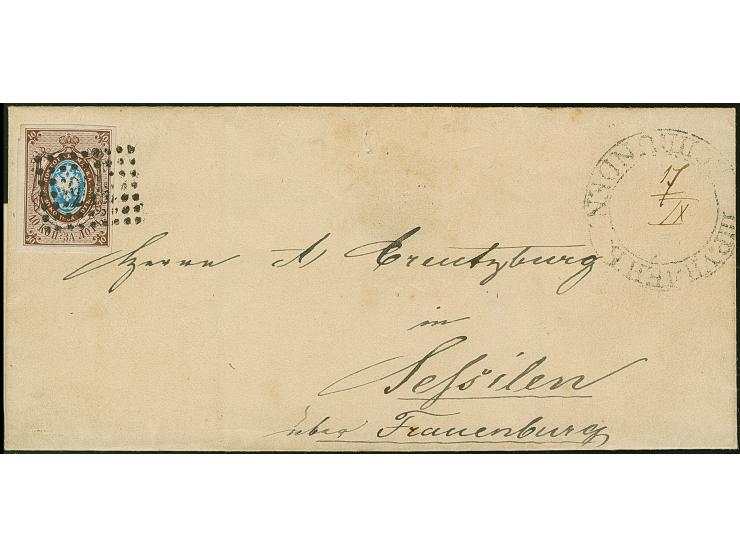 10 10
10 КОП. ЗА ЛОТЪ
10 10
17
IX
Herrn A Creutzburg
in
Seßilen
über Frauenburg